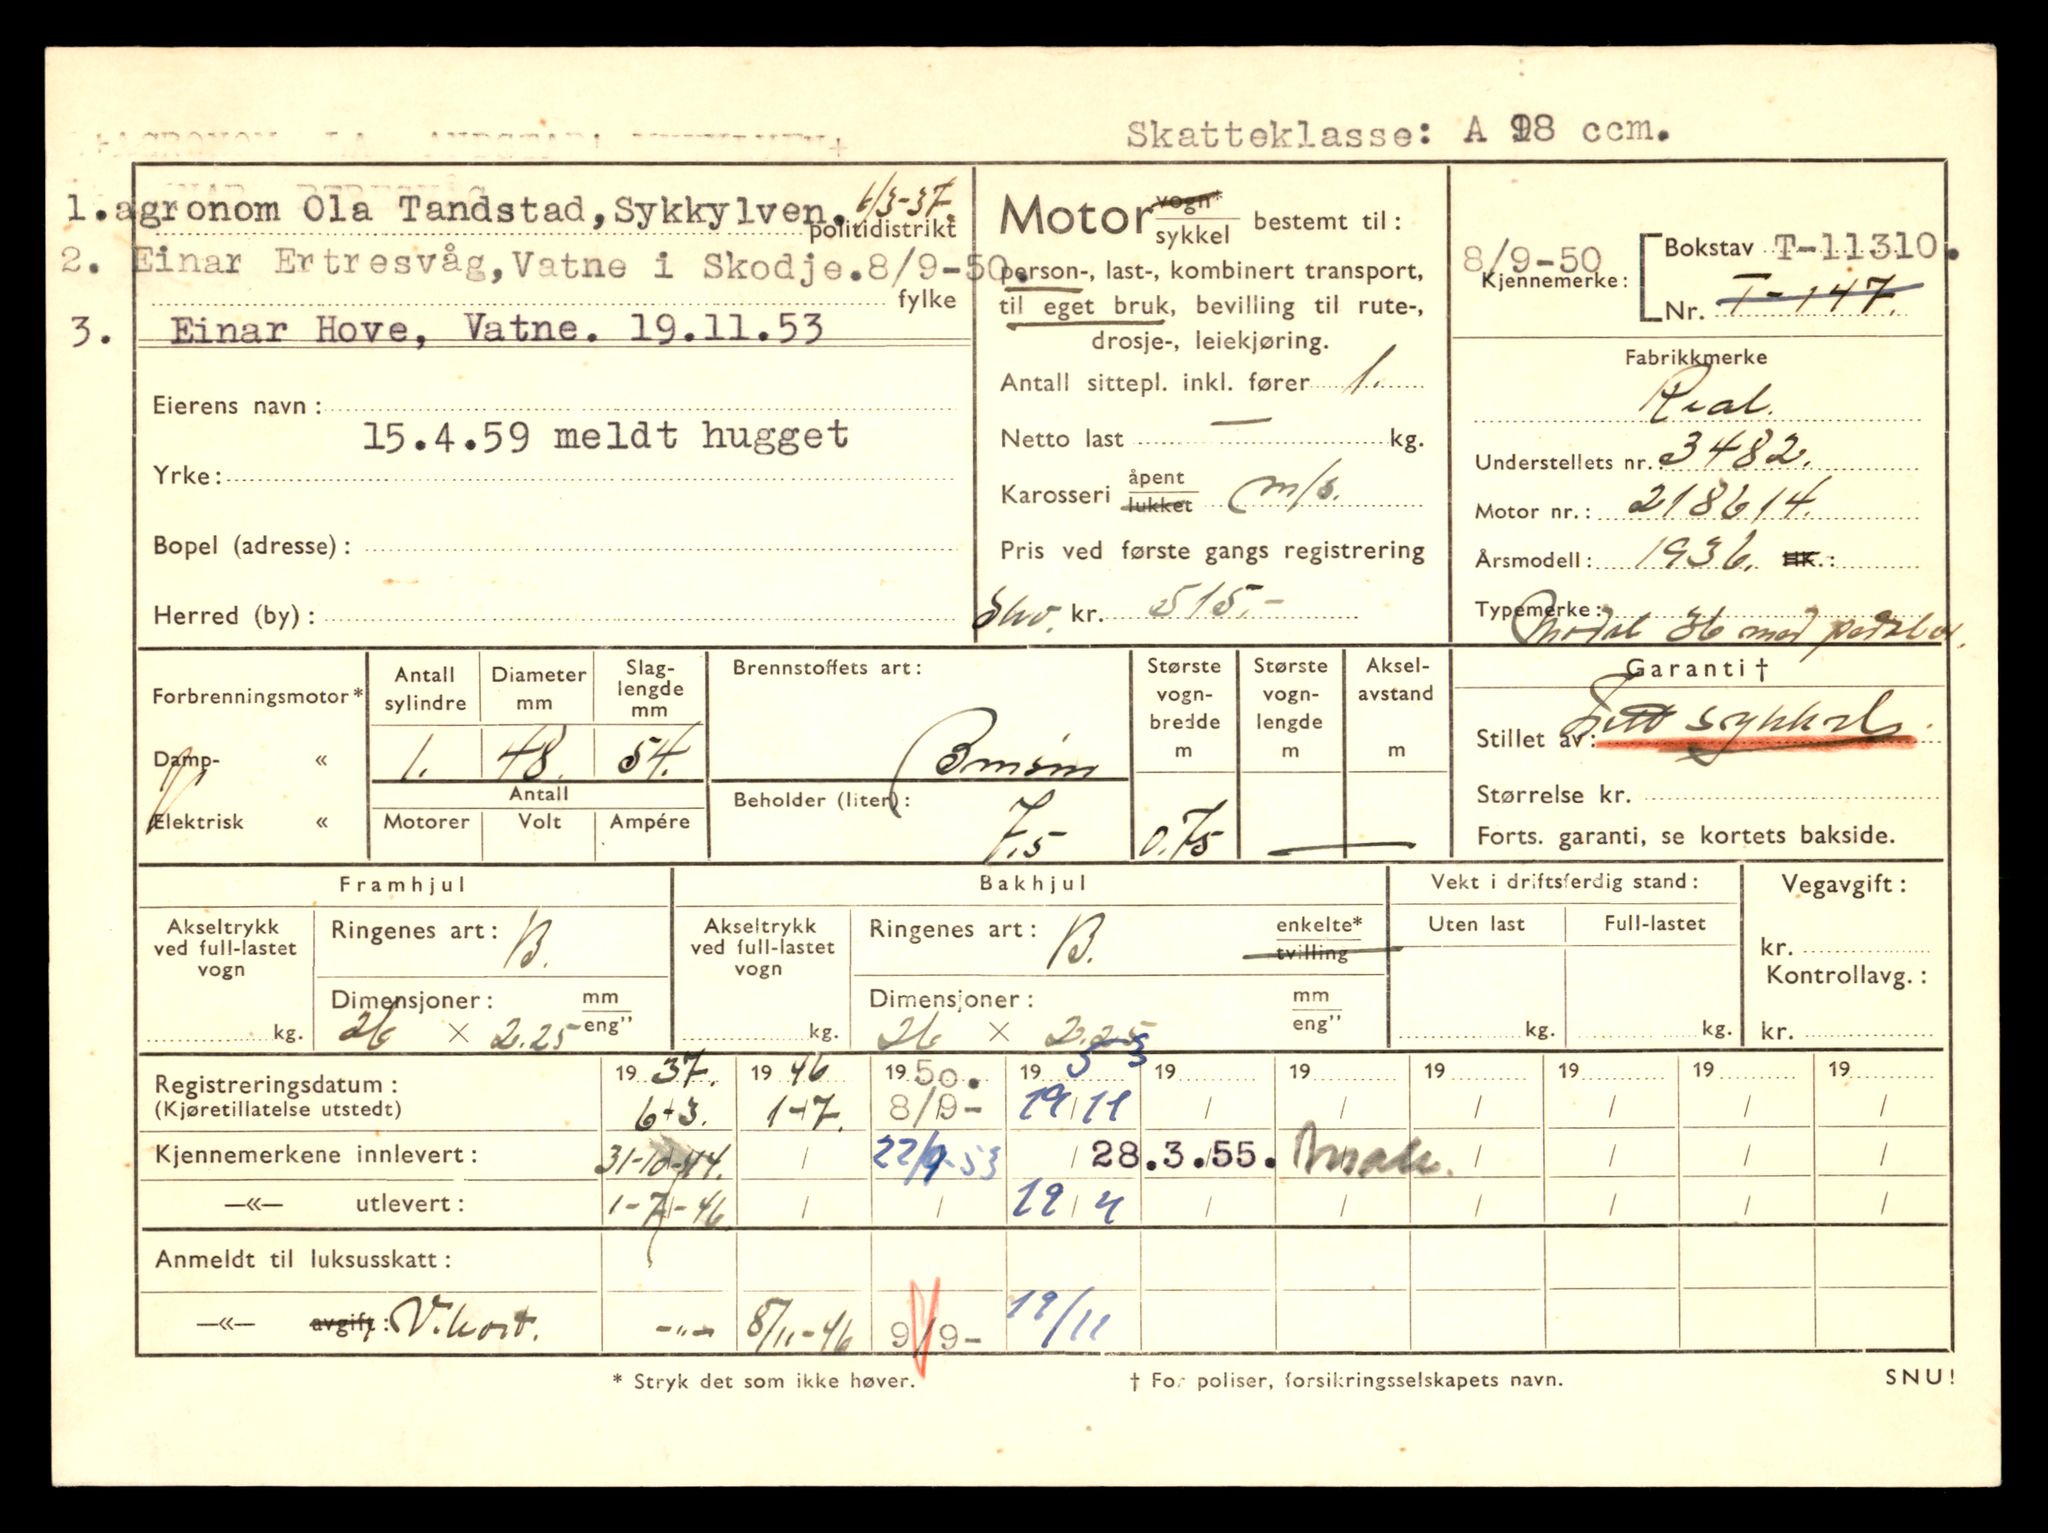 Skatteklasse: A 98 ccm.
1. agronom Ola Tandstad, Sykkylven. 6/3-37.
politidistrikt
2. Einar Ertresvåg, Vatne i Skodje. 8/9-50.
fylke
3. Einar Hove, Vatne. 19.11.53
Eierens navn:
15.4.59 meldt hugget
Yrke:
Bopel (adresse):
Herred (by):
Motor vogn* sykkel bestemt til:
person-, last-, kombinert transport,
til eget bruk, bevilling til rute-,
drosje-, leiekjøring.
Antall sittepl. inkl. fører 1.
Netto last — kg.
Karosseri åpent lukket m/s.
Pris ved første gangs registrering
kr. 515.-
8/9-50
Kjennemerke:
Bokstav T-11310.
Nr. T-147.
Fabrikkmerke
Real.
Understellets nr.: 3482.
Motor nr.: 218614.
Årsmodell: 1936. HK.:
Typemerke:
Model 36 med pedaler.
Forbrenningsmotor*
Damp- «
Elektrisk «
Antall sylindre
1.
Diameter mm
48.
Slag-lengde mm
54.
Antall
Motorer Volt Ampére
Brennstoffets art:
Bensin
Beholder (liter):
7.5
Største vogn-bredde m
0.75
Største vogn-lengde m
—
Aksel-avstand m
Garanti †
Stillet av: Lett sykkel.
Størrelse kr.
Forts. garanti, se kortets bakside.
Framhjul
Akseltrykk ved full-lastet vogn
kg.
Ringenes art: B.
Dimensjoner: mm eng”
26 × 2.25
Bakhjul
Akseltrykk ved full-lastet vogn
kg.
Ringenes art: B. enkelte* tvilling
Dimensjoner: mm eng”
26 × 2.25
Vekt i driftsferdig stand:
Uten last Full-lastet
kg. kg.
Vegavgift:
kr.
Kontrollavg.:
kr.
Registreringsdatum: 19 37. 19 46 19 50. 19 53 19 19 19 19 19 19
(Kjøretillatelse utstedt) 6+3. 1-7. 8/9- 19/11 / / / / / /
Kjennemerkene innlevert: 31-10-44. / 22/9-53 / 28.3.55. / / / /
—«— utlevert: 1-7-46. / / 19 / / / / / /
Anmeldt til luksusskatt:
—«— avgift: V.kort. -"- 8/11-46 9/9- 19/11
* Stryk det som ikke høver.
† For poliser, forsikringsselskapets navn.
SNU!